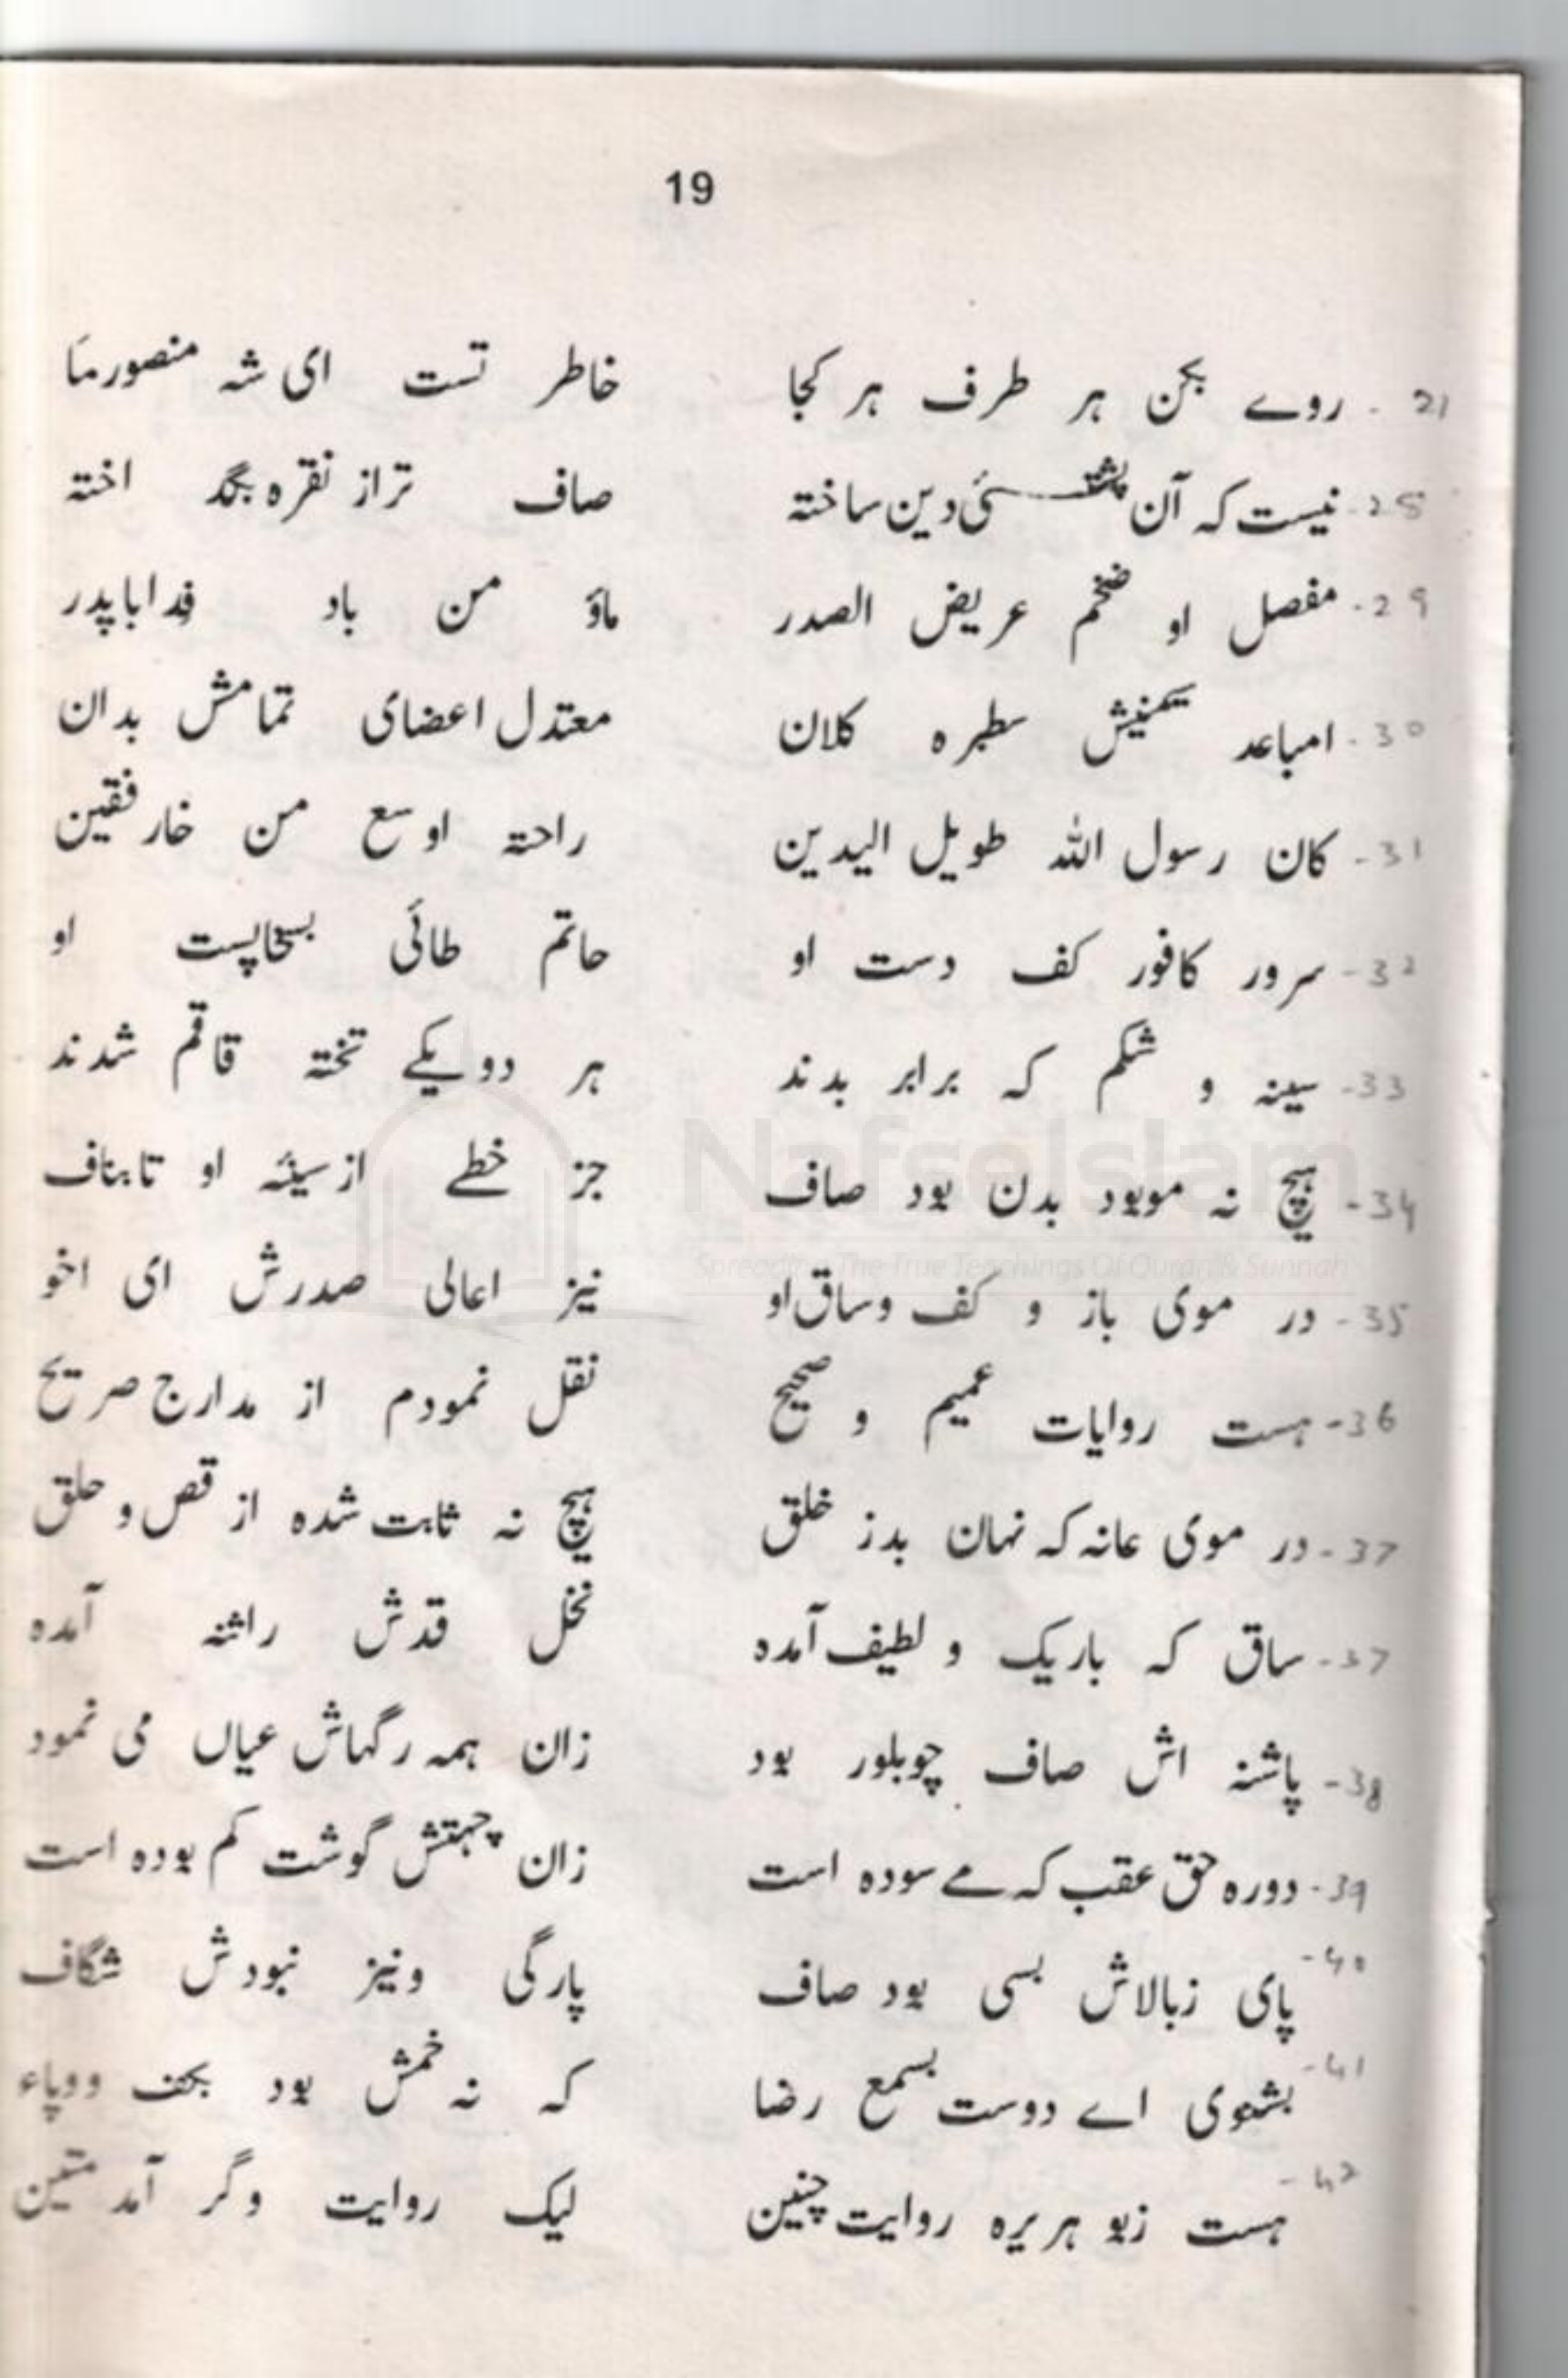 19
21 - روے بکن ہر طرف ہر کجا خاطر تست ای شہ منصورما
25 - نیست کہ آن پشتئی دین ساختہ صاف تراز نقرہ بگد اختہ
29 - مفصل او ضخم عریض الصدر ماؤ من باد فدابا پدر
30 - امباعد سطبرہ کلان معتدل اعضای تمامش بدان
31 - کان رسول اللہ طویل الیدین راحتہ اوسع من خارفقین
32 - سرور کافور کف دست او حاتم طائی بسخاپست او
33 - سینہ و شکم کہ برابر بدند ہر دویکے تختہ قاقم شدند
34 - ہیچ نہ موبود بدن بود صاف جز خطے ازسینہ او تابناف
35 - در موی باز و کف وساق او نیز اعالی صدرش ای اخو
36 - ہست روایات عمیم و صحیح نقل نمودم از مدارج صریح
37 - در موی عانہ کہ نہان بدز خلق ہیچ نہ ثابت شدہ از قص و حلق
37 - ساق کہ باریک و لطیف آمدہ نخل قدش راتنہ آمدہ
38 - پاشنہ اش صاف چوبلور بود زان ہمہ رگہاش عیاں می نمود
39 - دورہ حق عقب کہ مے سودہ است زان چہتش گوشت کم بودہ است
40 - پای زبالاش بسی بود صاف پارگی ونیز نبودش شگاف
41 - بشنوی اے دوست بسمع رضا کہ نہ خمش بود بکف ودپاء
42 - ہست زبو ہریرہ روایت چنین لیک روایت وگر آمد متین
NafseIslam
Spreading The True Teachings Of Quran & Sunnah